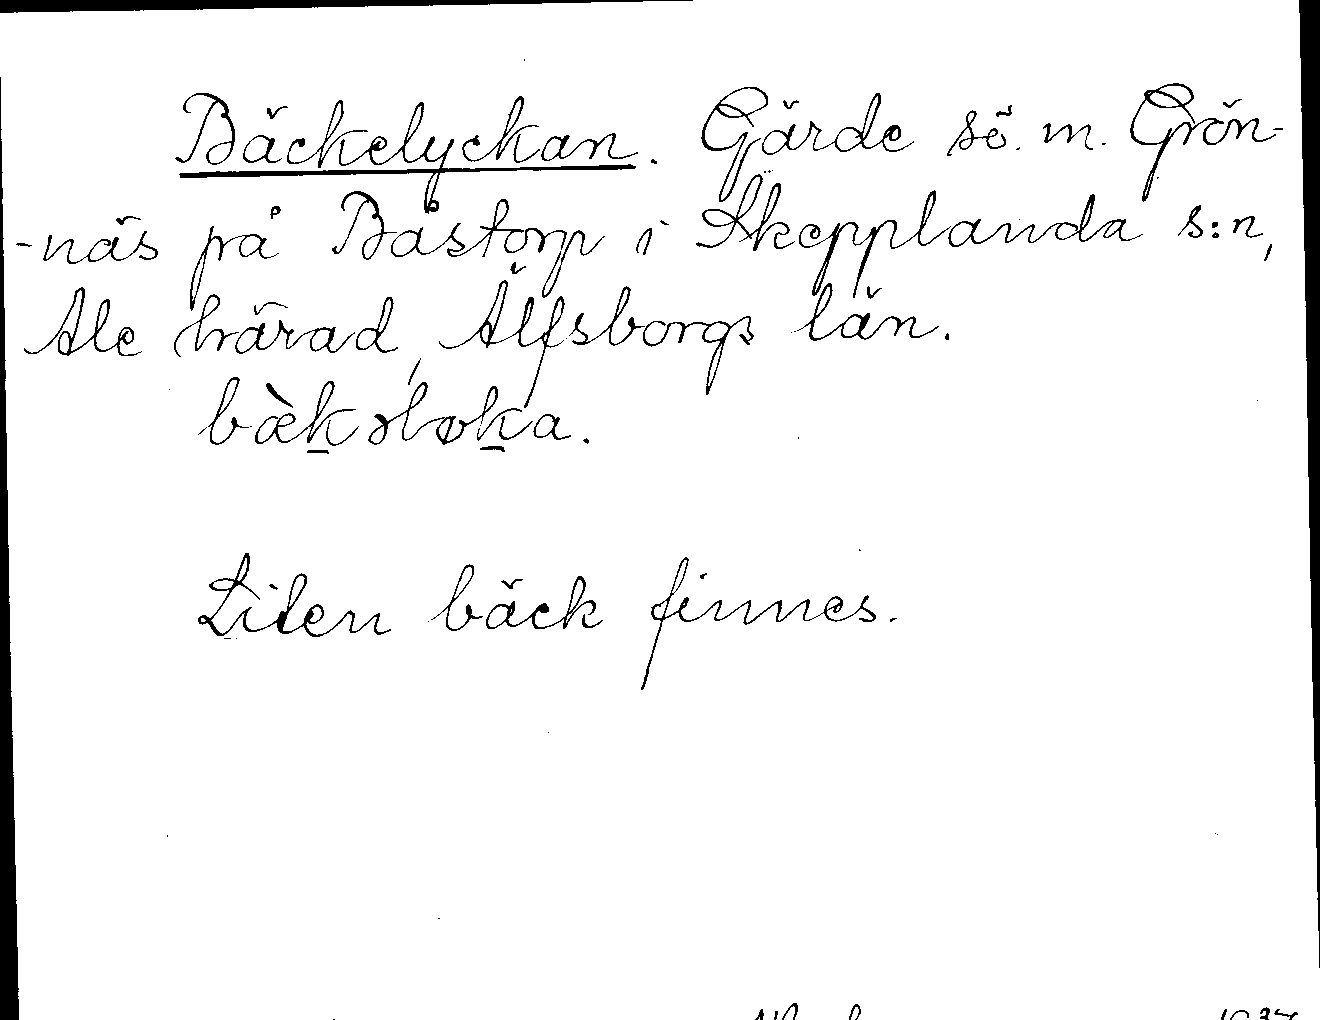 Bäckelyckan. Gärde sö. m. Grön-
-näs på Båstorp i Skepplanda s:n,
Ale härad, Älfsborgs län.
bæ̀kəløka.
Liten bäck finnes.